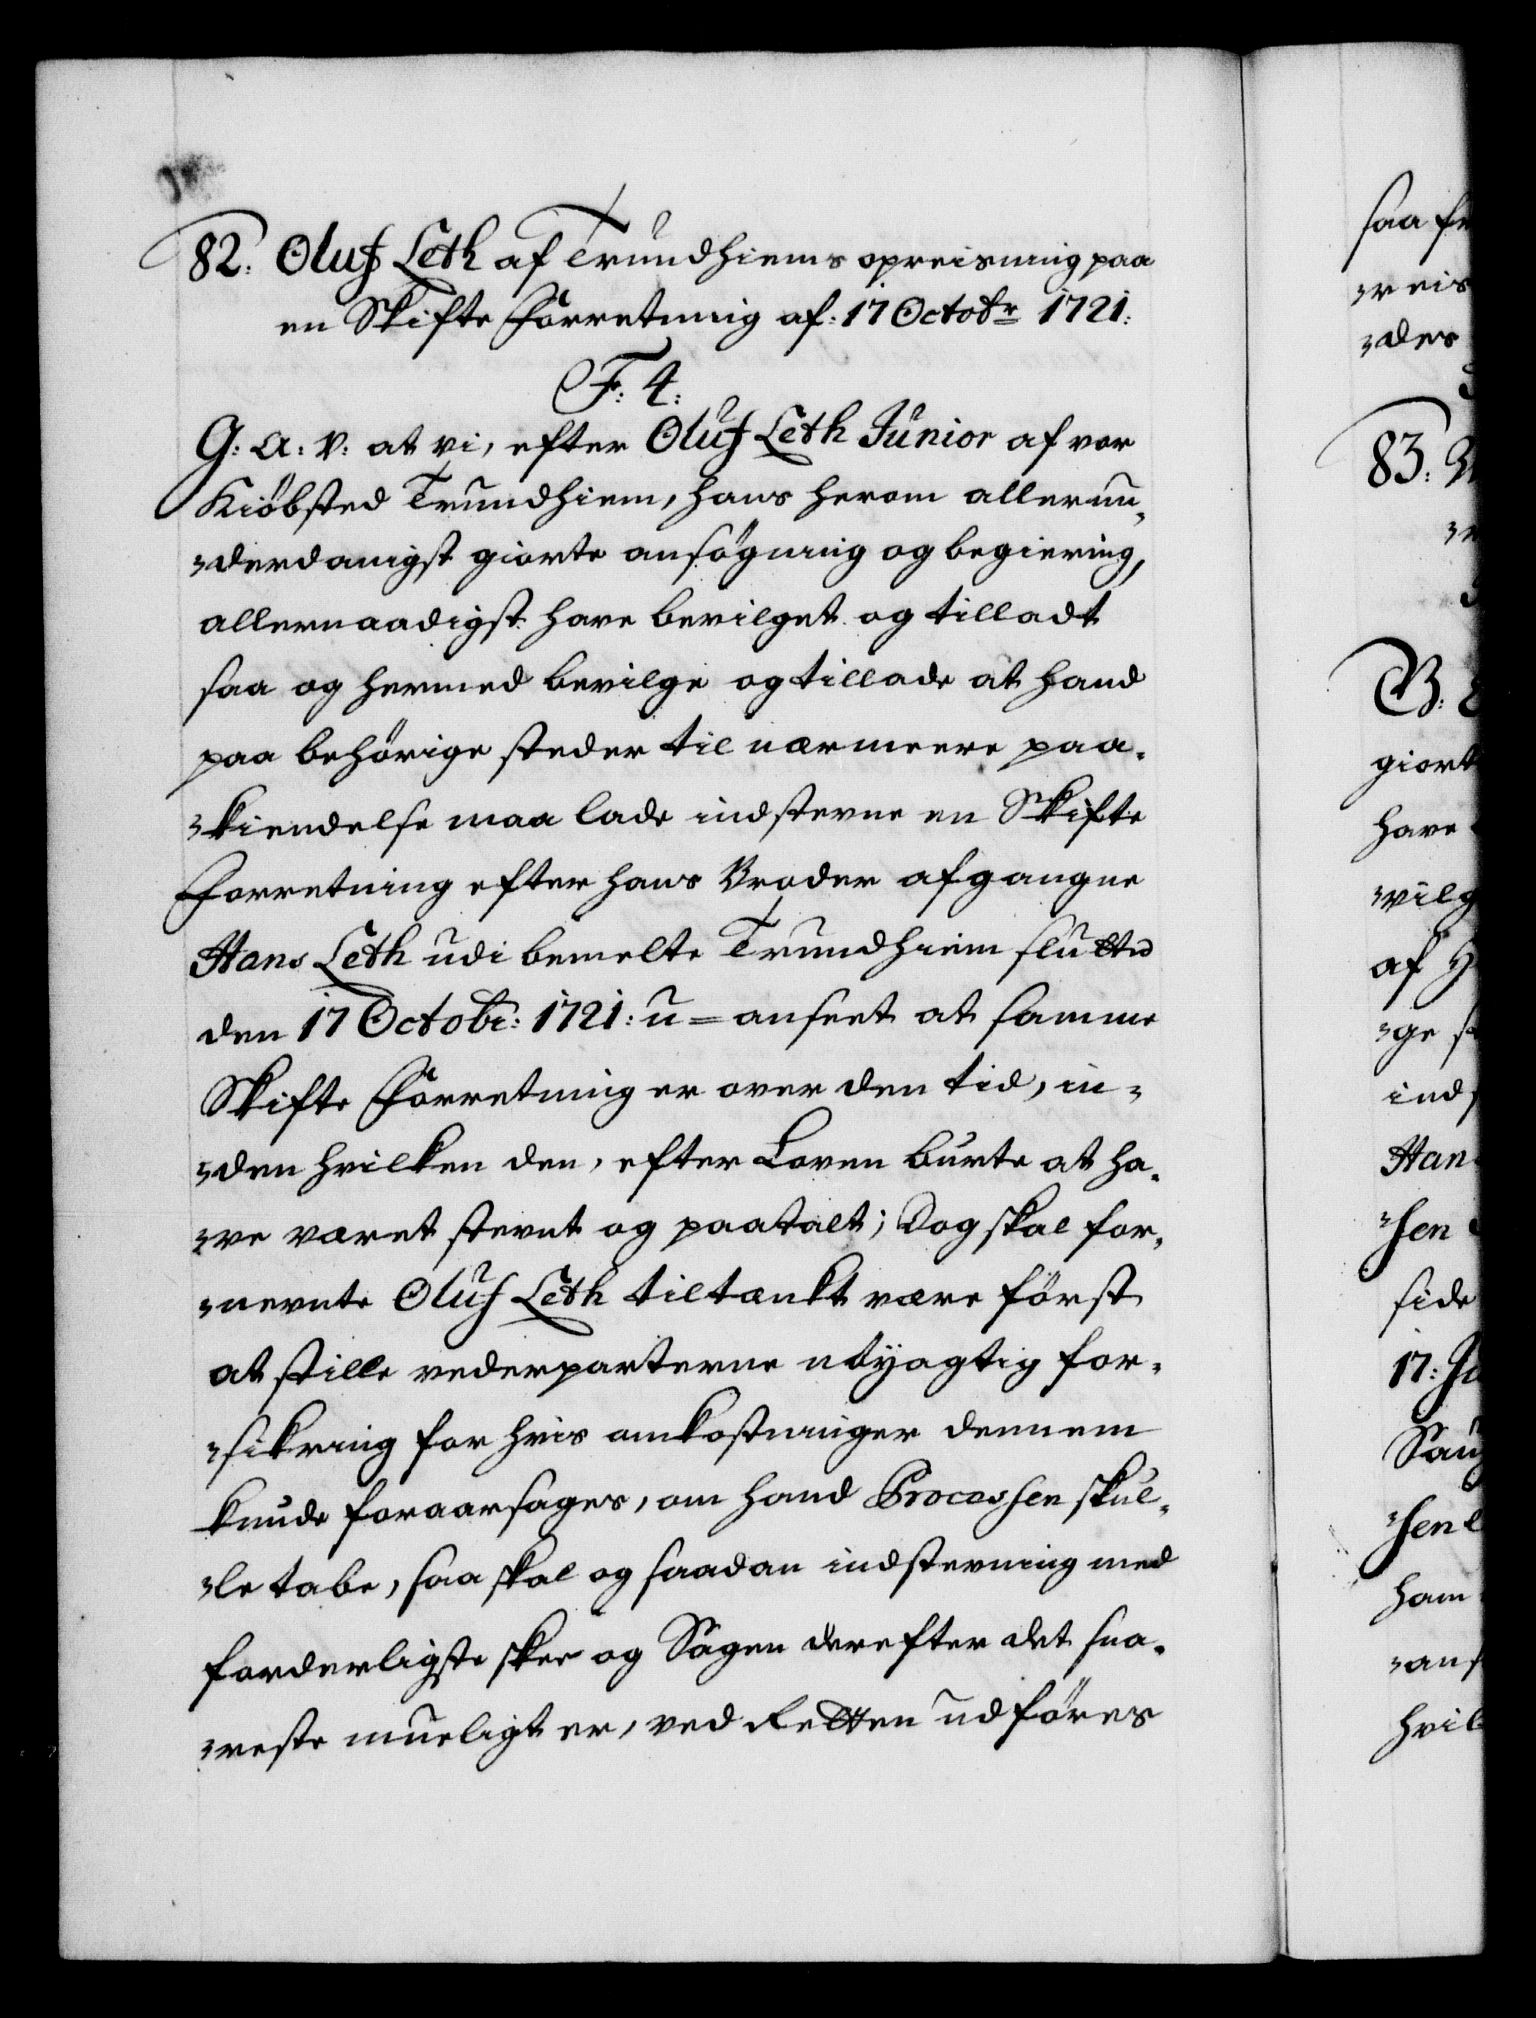 82. Oluf Leth af Trundhiems opreisning paa
en Skifte Forretning af: 17 Octobr 1721:
F: 4:
G: A: V: at vi, efter Oluf Leth Junior af vor
Kiöbsted Trundhiem, hans herom allerun-
-derdanigst giorte ansögning og begiering,
allernaadigst have bevilget og tilladt
saa og hermed bevilge og tillade at hand
paa behörige steder til nærmeere paa-
-kiendelse maa lade indstevne en Skifte
Forretning efter hans Broder afgangne
Hans Leth udi bemelte Trundhiem sluttet
den 17 Octobr: 1721: u=anseet at samme
Skifte Forretning er over den tid, in-
-den hvilken den, efter Loven burte at ha-
-ve været stevnt og paatalt; Dog skal for-
-nevnte Oluf Leth tiltænkt være först
at stille vederparterne nöyagtig for-
-sikring for hvis omkostninger dennem
kunde foraarsages, om hand Processen skul-
-le tabe, saa skal og saadan indstevning med
forderligste skee og Sagen derefter det sna-
-reste mueligt er, ved Retten udföres
saa fr
-reis
-des
83:
B:
giort
have
-vilg
af H
-ge st
ind
Han
-sen
side
17: Ju
-sen
ham
-ans
hvil